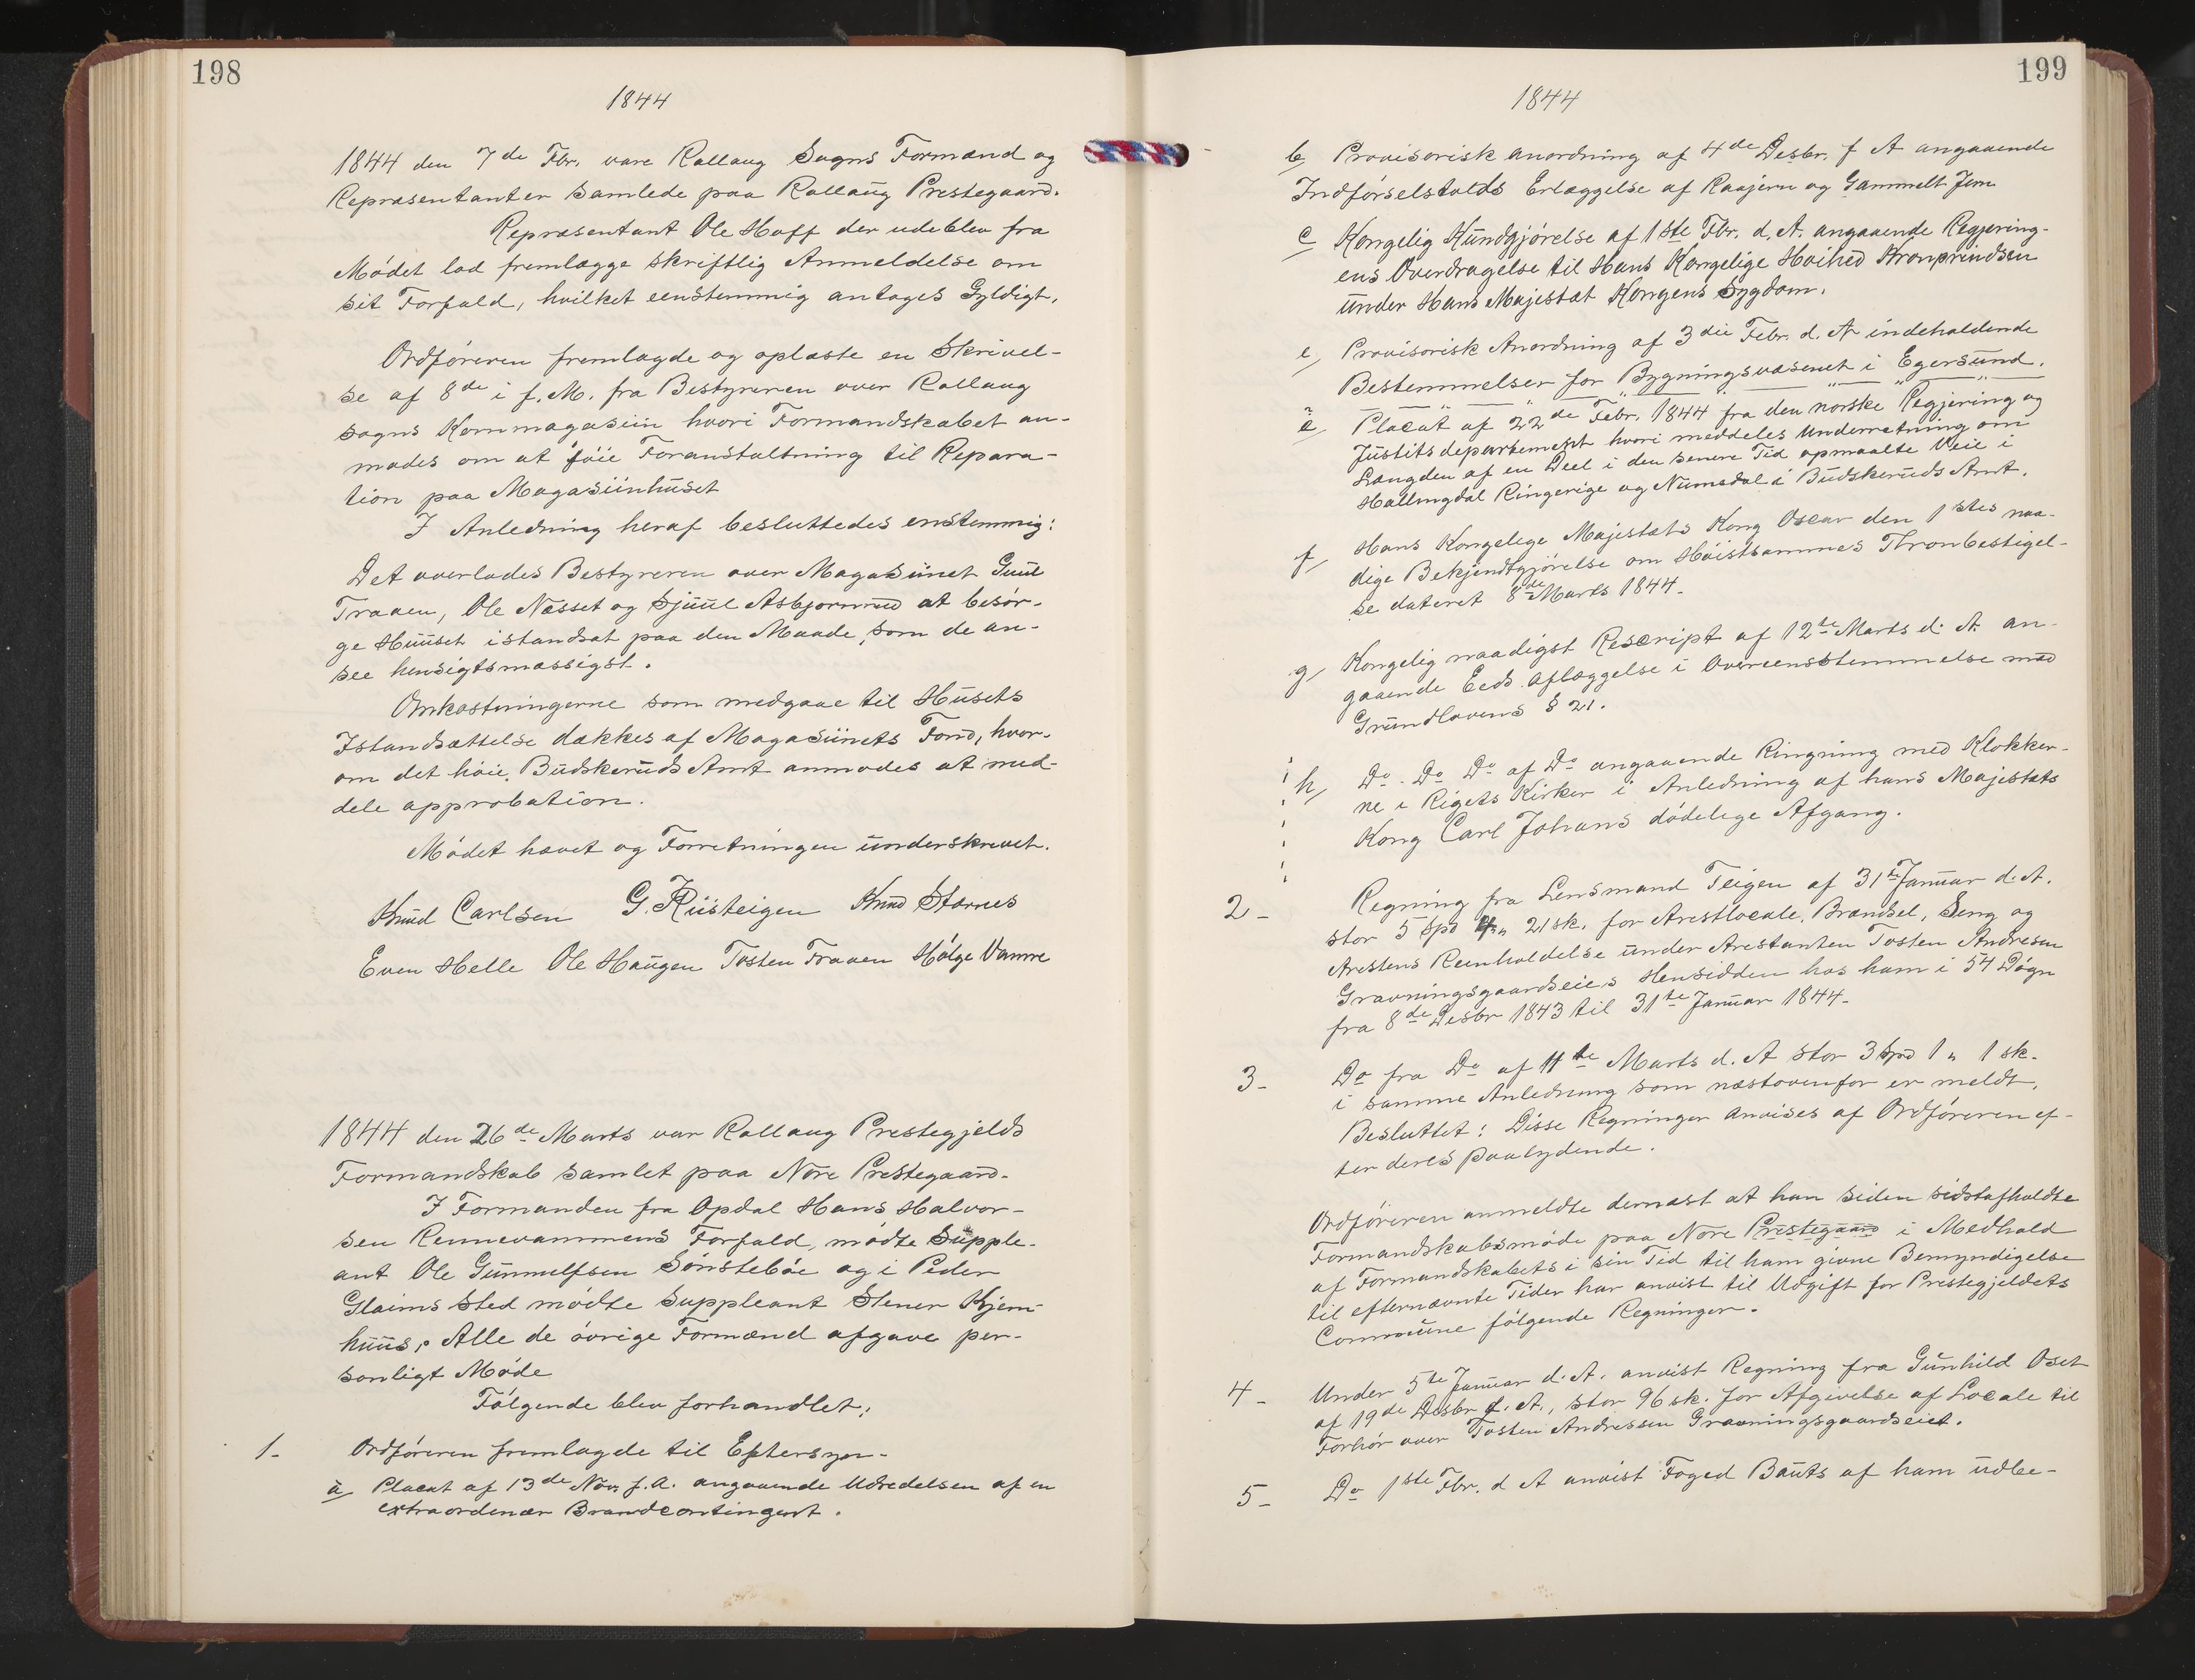 198
1844
1844 den 7de Fbr. vare Rollaug Sogns Formænd og
Repræsentanter samlede paa Rollaug Prestegaard.
Repræsentant Ole Hoff der udeblev fra
Mødet lod fremlægge skriftlig Anmeldelse om
sit Forfald, hvilket eenstemmig antages Gyldigt.
Ordføreren fremlagde og oplæste en Skrivel-
se af 8de i f. M. fra Bestyreren over Rollaug
sogns Kornmagasiin hvori Formandskabet an-
modes om at føie Foranstaltning til Repara-
tion paa Magasiinhuset
I Anledning heraf besluttedes enstemmig:
Det overlades Bestyreren over Magasinet Guul
Traaen, Ole Næsset og Sjuul Asbjornrud at besør-
ge Huuset istandsat paa den Maade som de an-
see hensigtsmæssigst.
Omkostningerne som medgaae til Husets
Istandsættelse dækkes af Magasiinets Fond, hvor-
om det høie Budskeruds Amt anmodes at med-
dele approbation.
Mødet hævet og Forretningen underskrevet.
Knud Carlsen G. K Rusteigen Knud Størnes
Even Helle Ole Haugen Tosten Traaen Hølge Vamre
1844 den 26de Marts var Rollaug Prestegjelds
Formandskab samlet paa Nore Prestegaard.
I Formanden fra Opdal Hans Halvor-
sen Rennevammens Forfald, mødte Supple-
ant Ole Gunnulfsen Sønstebøe og i Peder
Glaims Sted mødte Suppleant Stener Kjem-
huus, Alle de øvrige Formænd afgave per-
sonligt Møde
Følgende blev forhandlet:
1- Ordføreren fremlagde til Eftersyn-
a, Placat af 13de Nov. f. A. angaaende Udredelsen af en
extraordenær Brandcontingent.
199
1844
b, Provisorisk anordning af 4de Desbr. f A angaaende
Indførselstolds Erlæggelse af Raajern og Gammelt Jern
c Kongelig Kundgjørelse af 1ste Fbr. d. A. angaaende Regjering-
ens Overdragelse til Hans Kongelige Høihed Kronprindsen
under Hans Majestæt Kongens Sygdom.
e, Provisorisk Anordning af 3die Febr. d. A indeholdende
Bestemmelser for Bygningsvæsenet i Egersund.
e, Placat af 22de Febr. 1844 fra den norske Regjering og
Justitsdepartementet hvori meddeles Underretning om
Længden af en Deel i den senere Tid opmaalte Veie i
Hallingdal Ringerige og Numedal i Budskeruds Amt.
f, Hans Kongelege Majestæts Kong Oscar den 1stes naa-
dige Bekjendtgjørelse om Høistsammes Thronbestigel-
se dateret 8de Marts 1844.
g, Kongelig naadigst Rescript af 12te Marts d. A. an-
gaaende Eeds aflæggelse i Overeensstemmelse med
Grundlovens § 21.
h, Do. Do Do af Do angaaende Ringning med Klokker-
ne i Rigets Kirker i Anledning af hans Majestæts
Kong Carl Johans dødelege Afgang.
2- Regning fra Lensmand Teigen af 31te Januar d. A.
stor 5 Spd 4 " 21 sk. for Arestlocale, Brændsel, Seng og
Arestens Reenholdelse under Arestanten Tosten Andresen
Gravningsgaardseies Hensidden hos ham i 54 Døgn
fra 8de Desbr 1843 til 31te Januar 1844-
3- Do fra Do af 11te Marts d. A stor 3 Spd 1 " 1 sk.
i samme Anledning som næstovenfor er meldt.
Besluttet: Disse Regninger anvises af Ordføreren ef-
ter deres paalydende.
Ordføreren anmeldte dernæst at han siden sidstafholdte
Formandskabsmøde paa Nore Prestegaard i Medhold
af Formandskabets i sin Tid til ham givne Bemyndigelse
til efternævnte Tider har anvist til Udgift for Prestegjeldets
Commune følgende Regninger.
4- Under 5te Januar d. A. anvist Regning fra Gunhild Oset
af 19de Desbr f. A., stor 96 sk. for Afgivelse af Locale til
Forhør over Tosten Andressen Gravningsgaardseiet.
5- Do 1ste Fbr. d A anvist Foged Bauts af ham udbe-